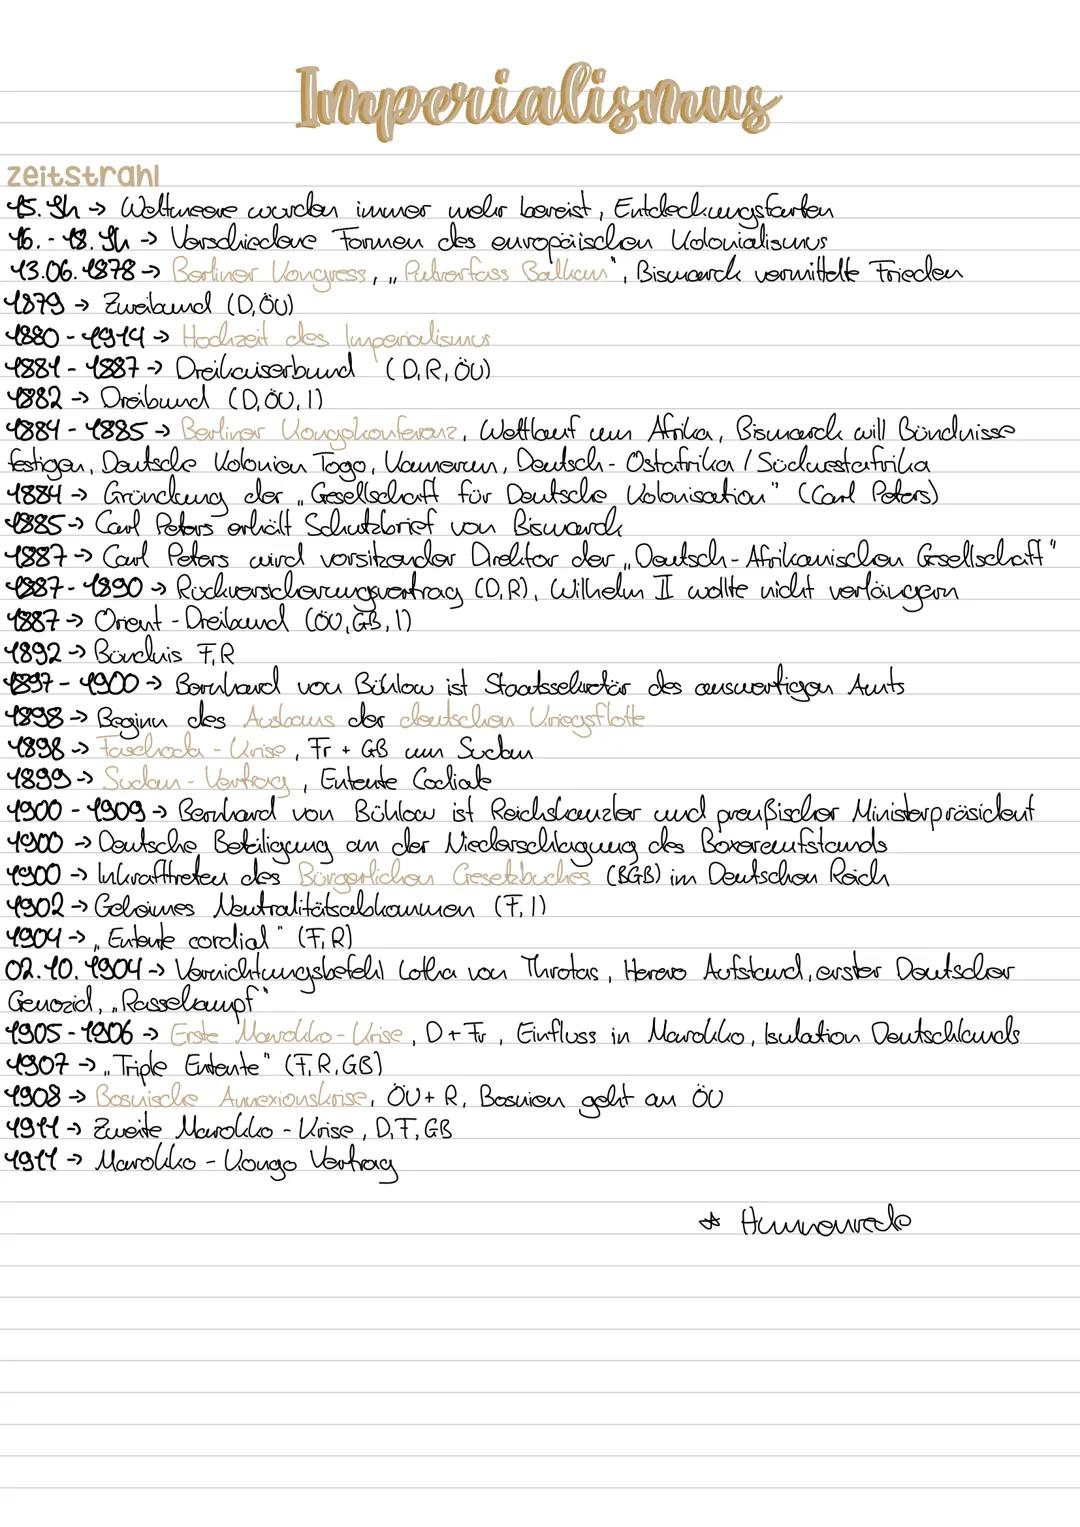 Imperialismus
Zeitstrahl
15. Jh → Weltmeere wurden immer mehr bereist, Entdeckungsfarten
16. - 18. Jh → Verschiedene Formen des europäischen Kolonialismus
13.06.1878 → Berliner Kongress, „Pulverfass Balkan", Bismarck vermittelt Frieden
1879 → Zweibund (D, ÖU)
1880 - 1914 → Hochzeit des Imperialismus
1881 - 1887 → Dreikaiserbund (D, R, ÖU)
1882 → Dreibund (D, ÖU, I)
1884 - 1885 → Berliner Kongokonferenz, Wettlauf um Afrika, Bismarck will Bündnisse
festigen, Deutsche Kolonien Togo, Kamerun, Deutsch - Ostafrika / Südwestafrika
1884 → Gründung der „Gesellschaft für Deutsche Kolonisation" (Carl Peters)
1885 → Carl Peters erhält Schutzbrief von Bismarck
1887 → Carl Peters wird vorsitzender Direktor der „Deutsch - Afrikanischen Gesellschaft"
1887 - 1890 → Rückversicherungsvertrag (D, R), Wilhelm II wollte nicht verlängern
1887 → Orient - Dreibund (ÖU, GB, I)
1892 → Bündnis F, R
1897 - 1900 → Bernhard von Bühlow ist Staatssekretär des auswertigen Amts
1898 → Beginn des Ausbaus der deutschen Kriegsflotte
1898 → Faschoda - Krise, Fr + GB um Sudan
1899 → Sudan - Vertrag, Entente Codiale
1900 - 1909 → Bernhard von Bühlow ist Reichskanzler und preußischer Ministerpräsident
1900 → Deutsche Beteiligung an der Niederschlagung des Boxeraufstands
1900 → Inkrafttreten des Bürgerlichen Gesetzbuches (BGB) im Deutschen Reich
1902 → Geheimes Neutralitätsabkommen (F, I)
1904 → „Entente cordial" (F, R)
02.10.1904 → Vernichtungsbefehl Lotha von Throtas, Herero Aufstand, erster Deutscher
Genozid, „Rassekampf"
1905 - 1906 → Erste Marokko - Krise, D + Fr, Einfluss in Marokko, Isulation Deutschlands
1907 → „Triple Entente" (F, R, GB)
1908 → Bosnische Annexionskrise, ÖU + R, Bosnien geht an ÖU
1911 → Zweite Marokko - Krise, D, F, GB
1911 → Marokko - Kongo Vertrag